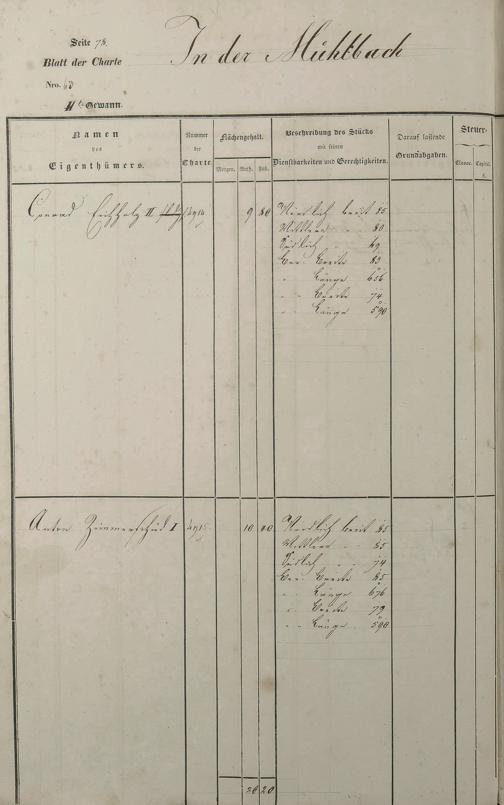 Seite 78.
In der Mühlbach
Blatt der Charte
Nro. 63
IIte Gewann.
Namen
des
Eigenthümers.
Nummer
der
Charte.
Flächengehalt.
Morgen. Ruth. Fuß.
Beschreibung des Stücks
mit seinen
Dienstbarkeiten und Gerechtigkeiten.
Darauf lastende
Grundabgaben.
Steuer-
Classe. Capital.
fl.
Conrad II 9 80 Nördlich breit 85
Mittlere " 80
Südlich " 69
Ber. Breite 83
" Länge 656
" Breite 74
" Länge 590
Anton Zimmerschied I 10 40 Nördlich breit 85
Mittlere " 85
Südlich " 74
Ber. Breite 85
" Länge 676
" Breite 79
" Länge 590
20 20